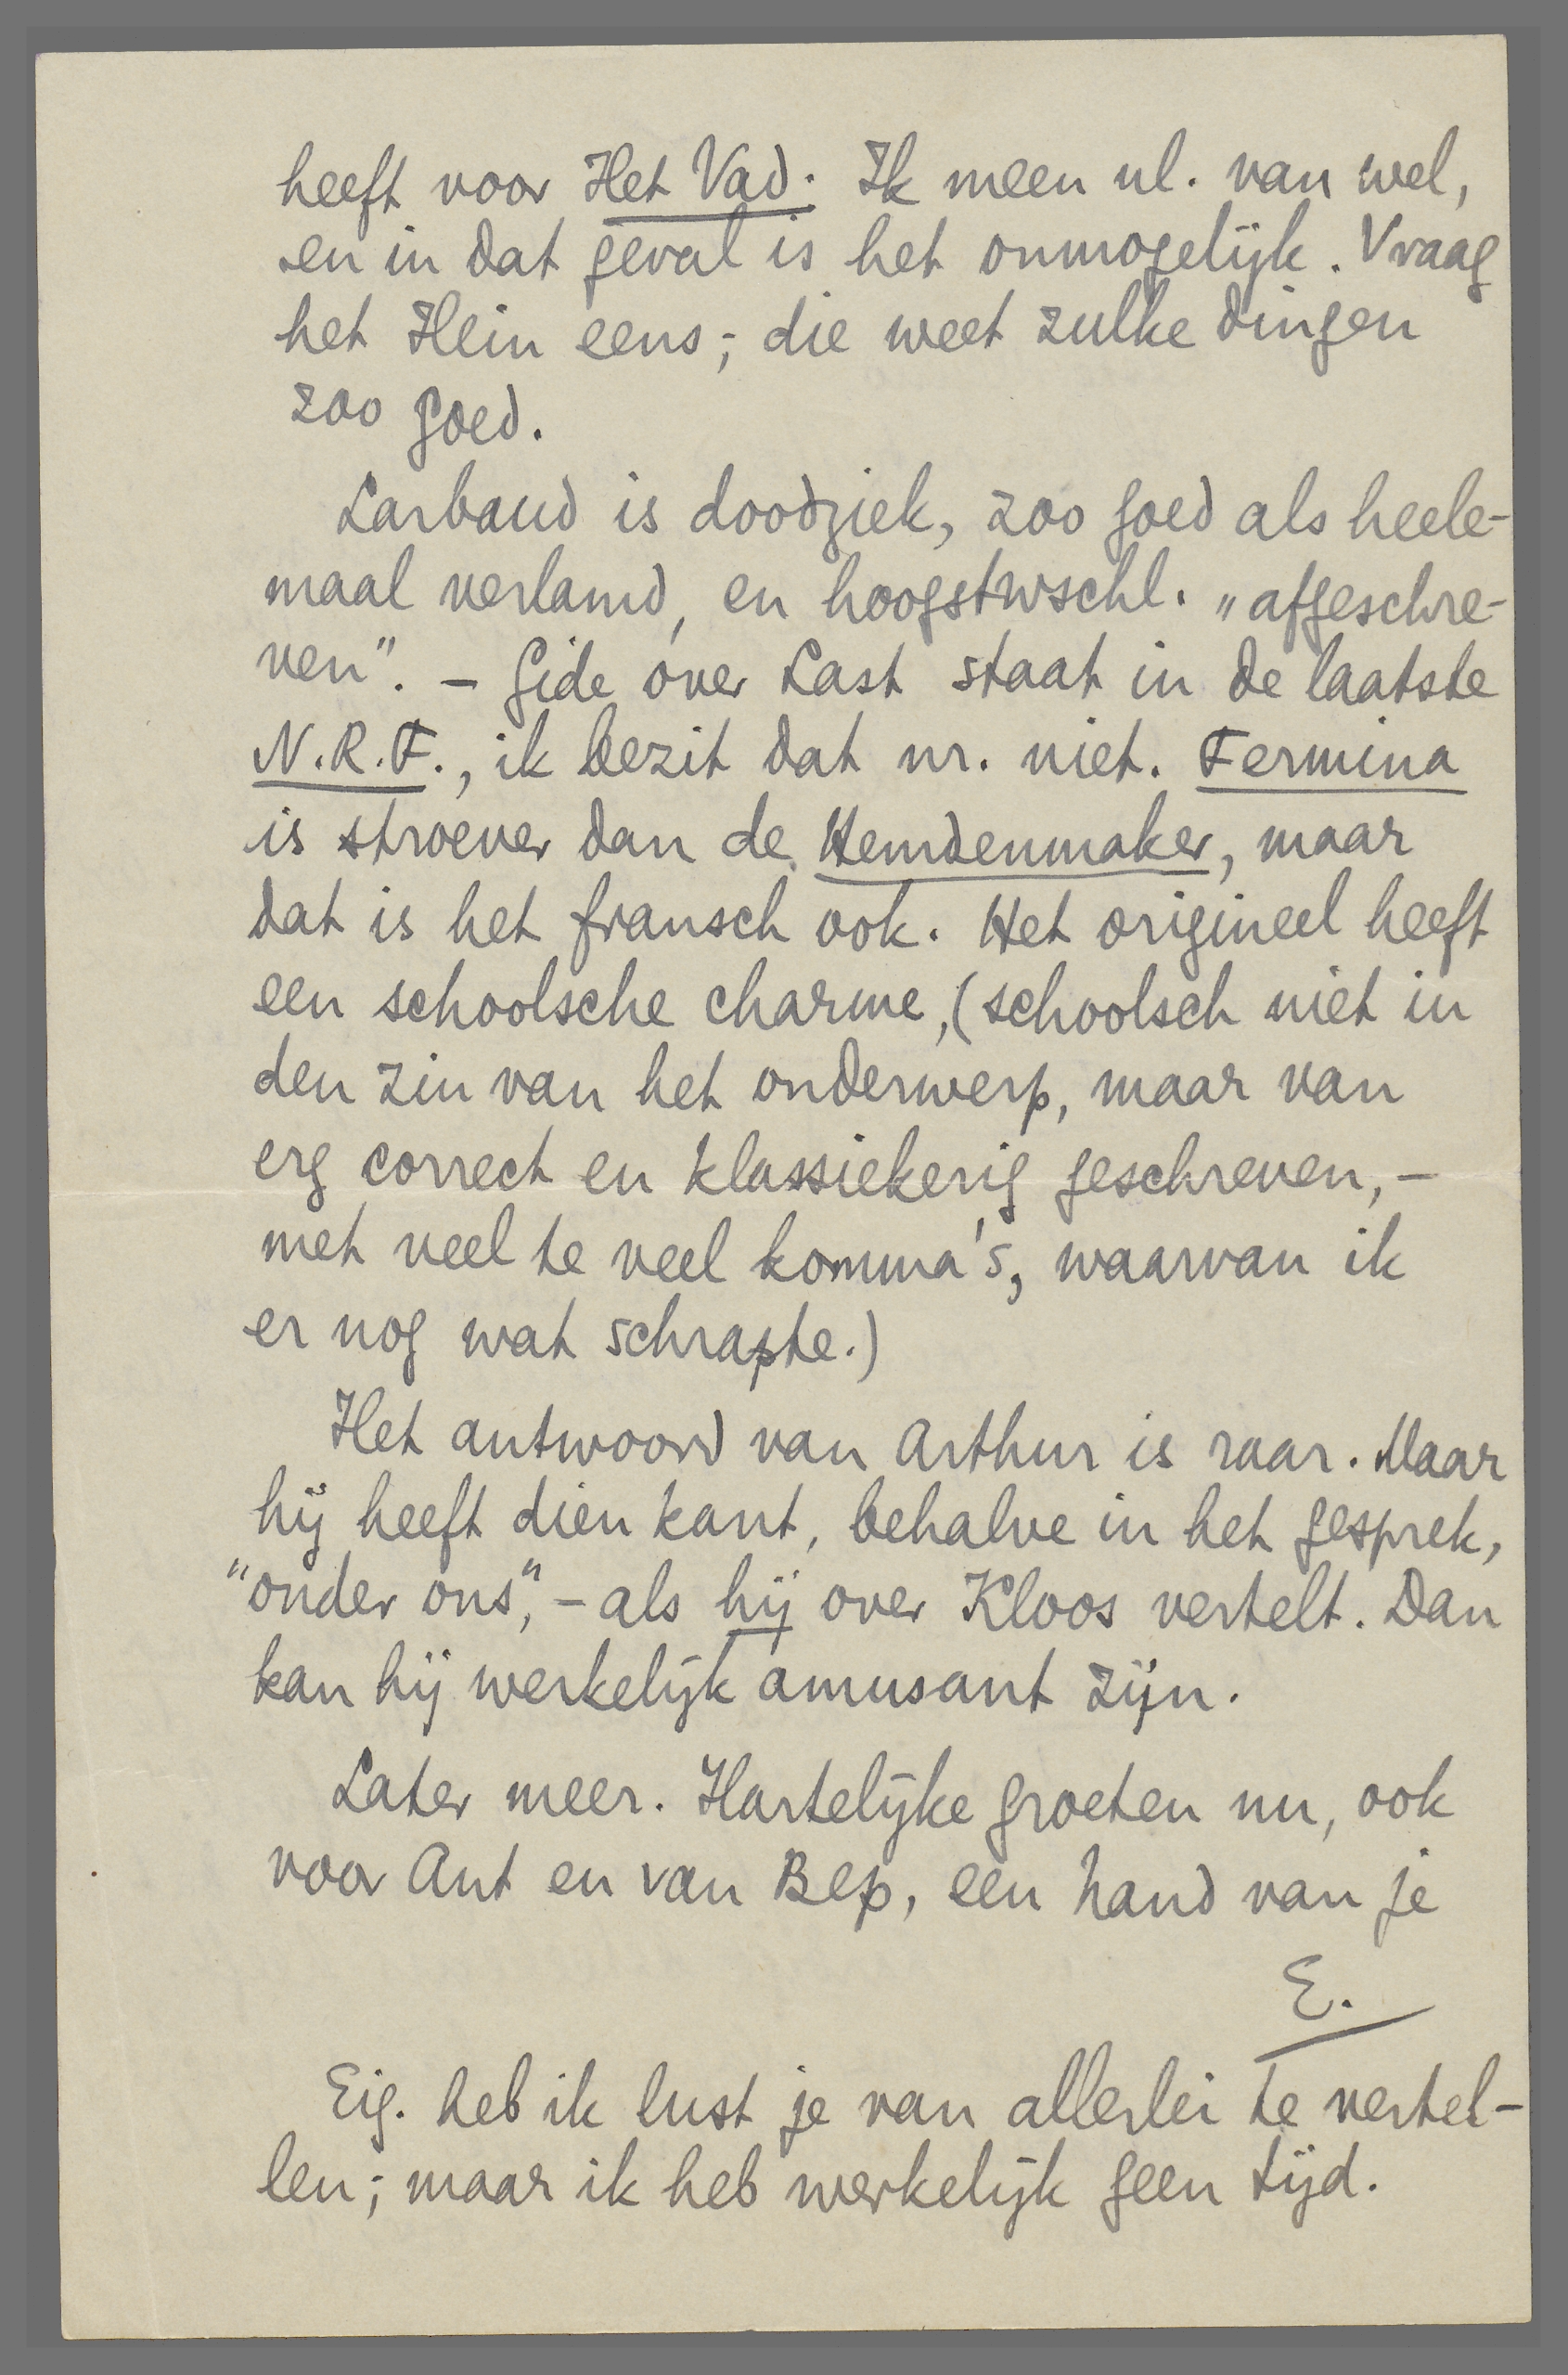 heeft voor Het Vad. Ik meen nl. van wel,
en in dat geval is het onmogelijk. Vraag
het Hein eens; die weet zulke dingen
zoo goed.
Larbaud is doodziek, zoo goed als heele-
maal verlamd, en hoogstwschl. „afgeschre-
ven”. – Gide óver Last staat in de laatste
N.R.F., ik bezit dat nr. niet. Fermina
is stroever dan de Hemdenmaker, maar
dat is het fransch ook. Het origineel heeft
een schoolsche charme, (schoolsch niet in
den zin van het onderwerp, maar van
erg correct en klassiekerig geschreven, –
met veel te veel komma's, waarvan ik
er nog wat schrapte.)
Het antwoord van Arthur is raar. Maar
hij heeft dien kant, behalve in het gesprek,
“onder ons”, – als hij over Kloos vertelt. Dan
kan hij werkelijk amusant zijn.
Later meer. Hartelijke groeten nu, ook
voor Ant en van Bep, een hand van je
E.
Eig. heb ik lust je van allerlei te vertel-
len; maar ik heb werkelijk geen tijd.